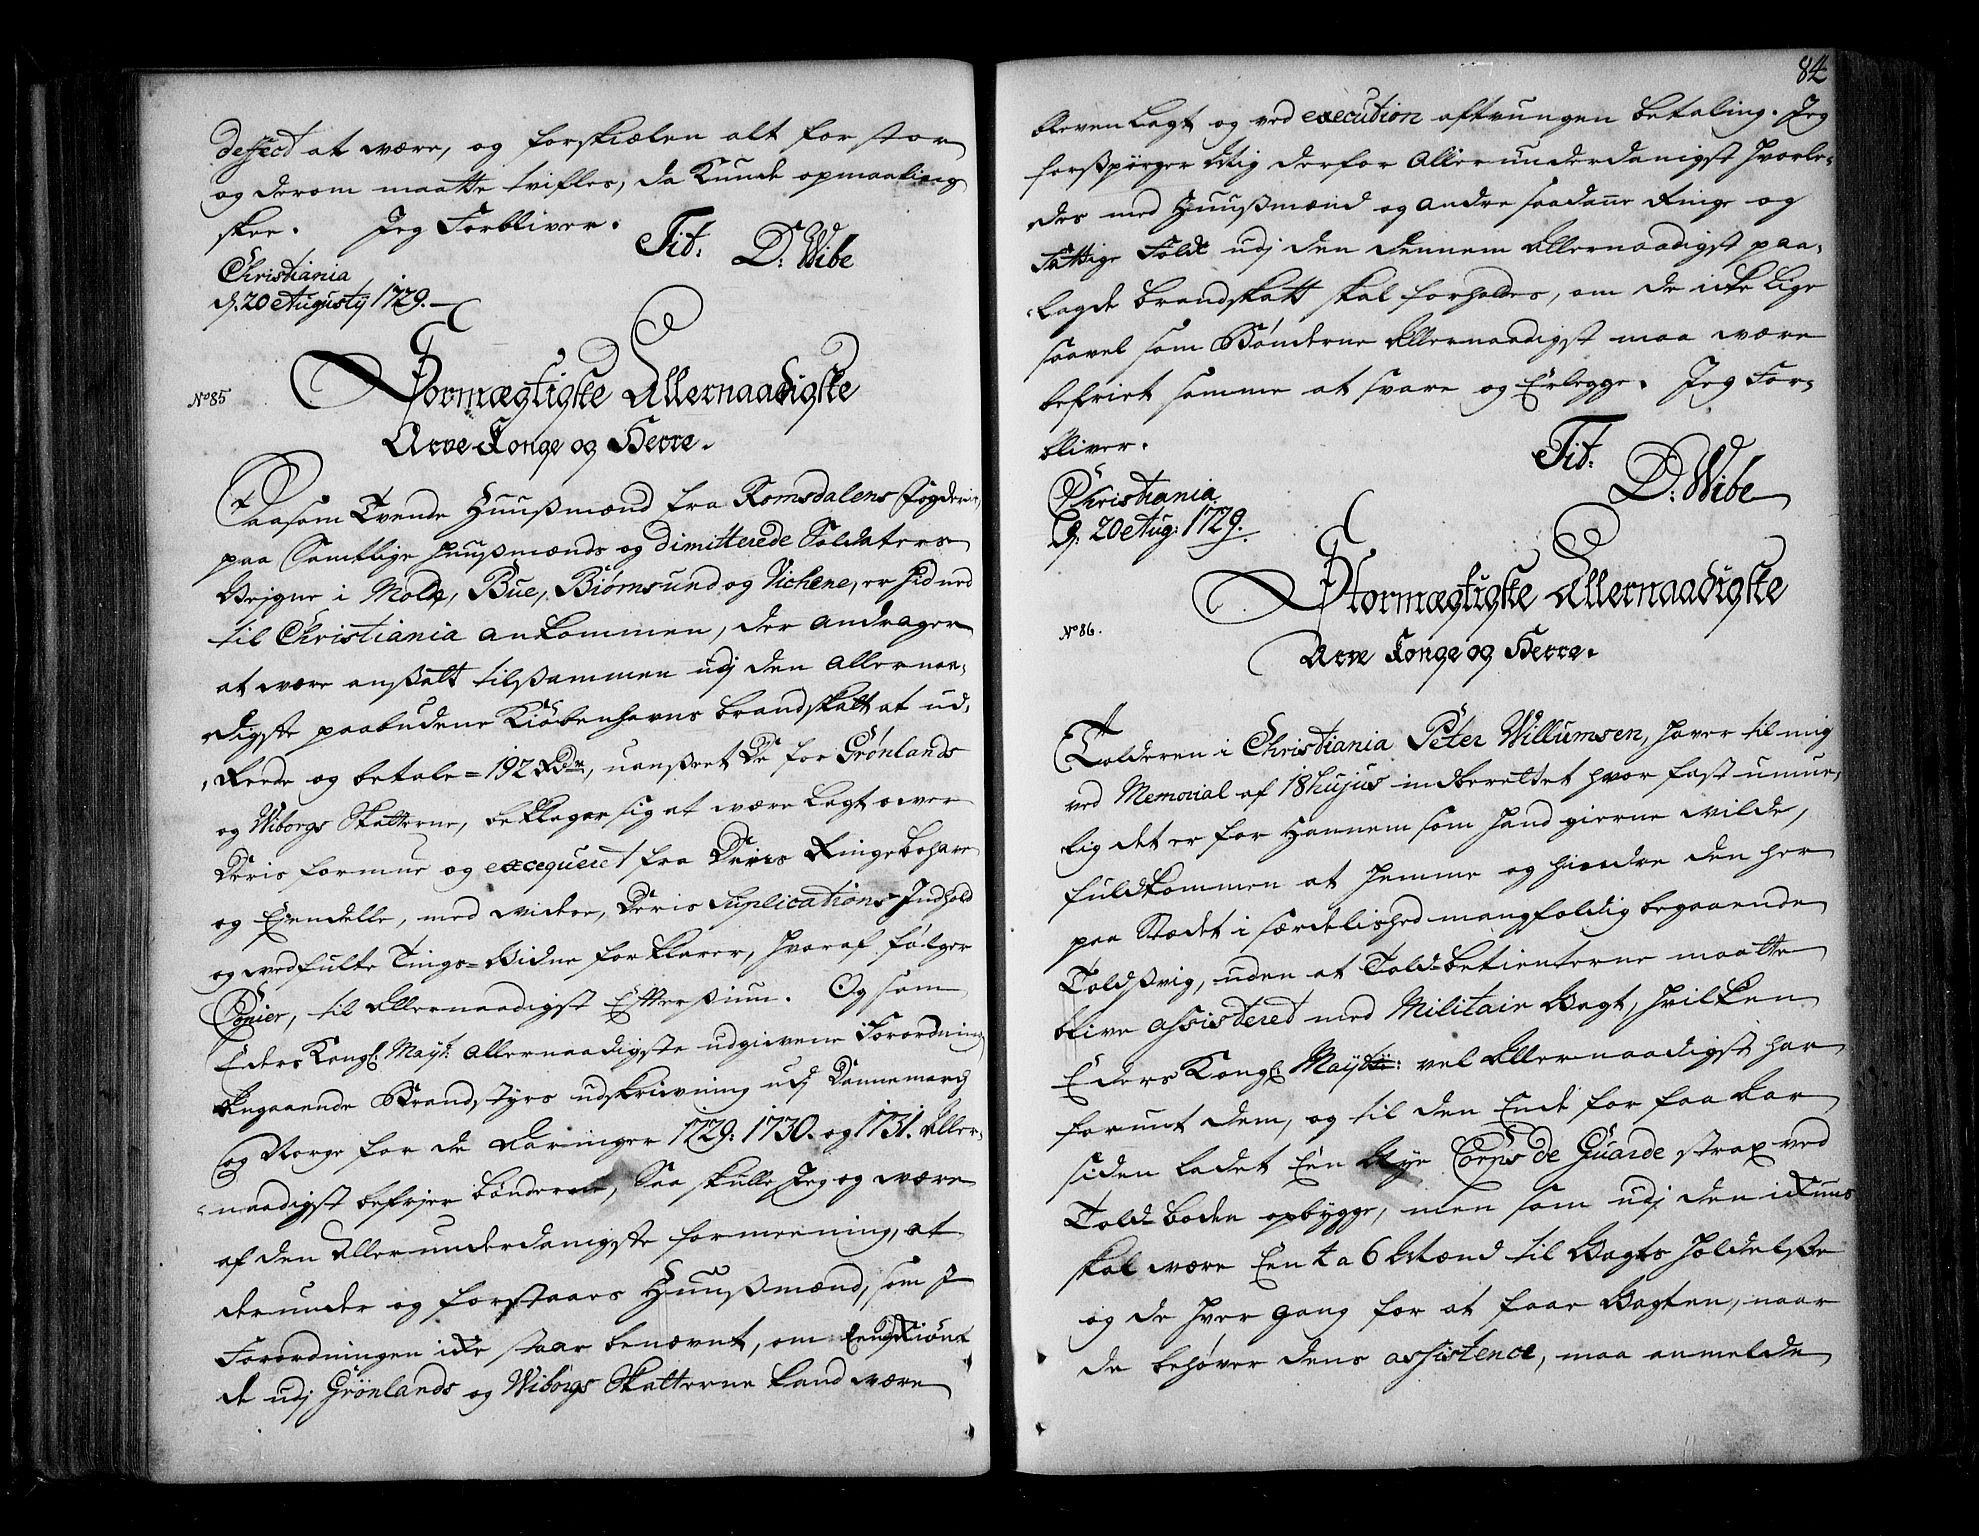 defect at være, og forskiælen alt for stor
og derom maatte tvifles, da Kunde opmaaling
skee. Jeg Forbliver.
Tit: D: Wibe
Christiania
d. 20 Augustij 1729.
No 85
Stormægtigste Allernaadigste
Arve Konge og Herre.
Saasom Tvende Huusmænd fra Romsdalens Fogderie,
paa Samtlige Huusmænds og dimitterede Soldaters
Vegne i Molde, Bue, Biörnsund og Vichene, er hid ned
til Christiania ankommen, der andrager
at være ansatt tilsammen udj den allernaa-
digste paabudene Kiöbenhavns brandskatt at ud-
Rede og betale = 192 Rdr, uanseet De for Grönlands
og Wiborgs Skatterne, beklager sig at være lagt over
Deris formue og exceqveret fra Deris Ringe bohave
og Ejendelle, med videre, Deris Suplications Indhold
og vedfulte Tings-Vidne forklarer, hvoraf følger
Copier, til Allernaadigst Efttersiun. Og som
Eders Kongl: Mayt: allernaadigste udgivene Forordning
Angaaende Brandstyrs udskrivning udj Dannemarch
og Norge for de Aaringer 1729. 1730. og 1731. Aller-
naadigst befrier bönderne, Saa skulle Jeg og være
af den Allerunderdanigste formeening, at
derunder og forstaaes Huusmænd, som J
Forordningen icke staar benævnt, om Endskiönt
de udj Grönlands og Wiborgs Skatterne kand være
84
bleven Lagt og ved execution aftvungen betaling. Jeg
forspörger Mig derfor Allerunderdanigst hvorle-
des med Huusmænd og andre saadane Ringe og
Fattige Folck udj den dennem Allernaadigst paa-
lagde brandskatt skal forholdes, om de icke lige
saavel som Bönderne Allernaadigst maa være
befriet samme at svare og Erlegge. Jeg For-
bliver.
Tit: D: Wibe
Christiania
d. 20 Aug: 1729.
No 86.
Stormægtigste Allernaadigste
Arve Konge og Herre.
Tolderen i Christiania Peter Willumsen, haver til mig
ved Memorial af 18 hujus indberettet hvor fast umue-
lig det er for Hannem som hand gierne vilde,
fuldkommen at hemme og hindre den her
paa Stædet i særdelished mangfoldig begaaende
Toldsvig, uden at Told-betienterne maatte
blive assisteret med Militair Vagt, hvilken
Eders Kongl: Mayt: vel Allernaadigst har
forunt dem, og til den Ende for faa Aar
siden ladet Een Nye Corps de Guarde strax ved
Toldboden opbygge, men som udj den ickuns
skal være Een 4 a 6 Mænd til Vagts holdelse
og de hver gang for at faae Vagten, naar
de behøver dens assistence, maa anmelde